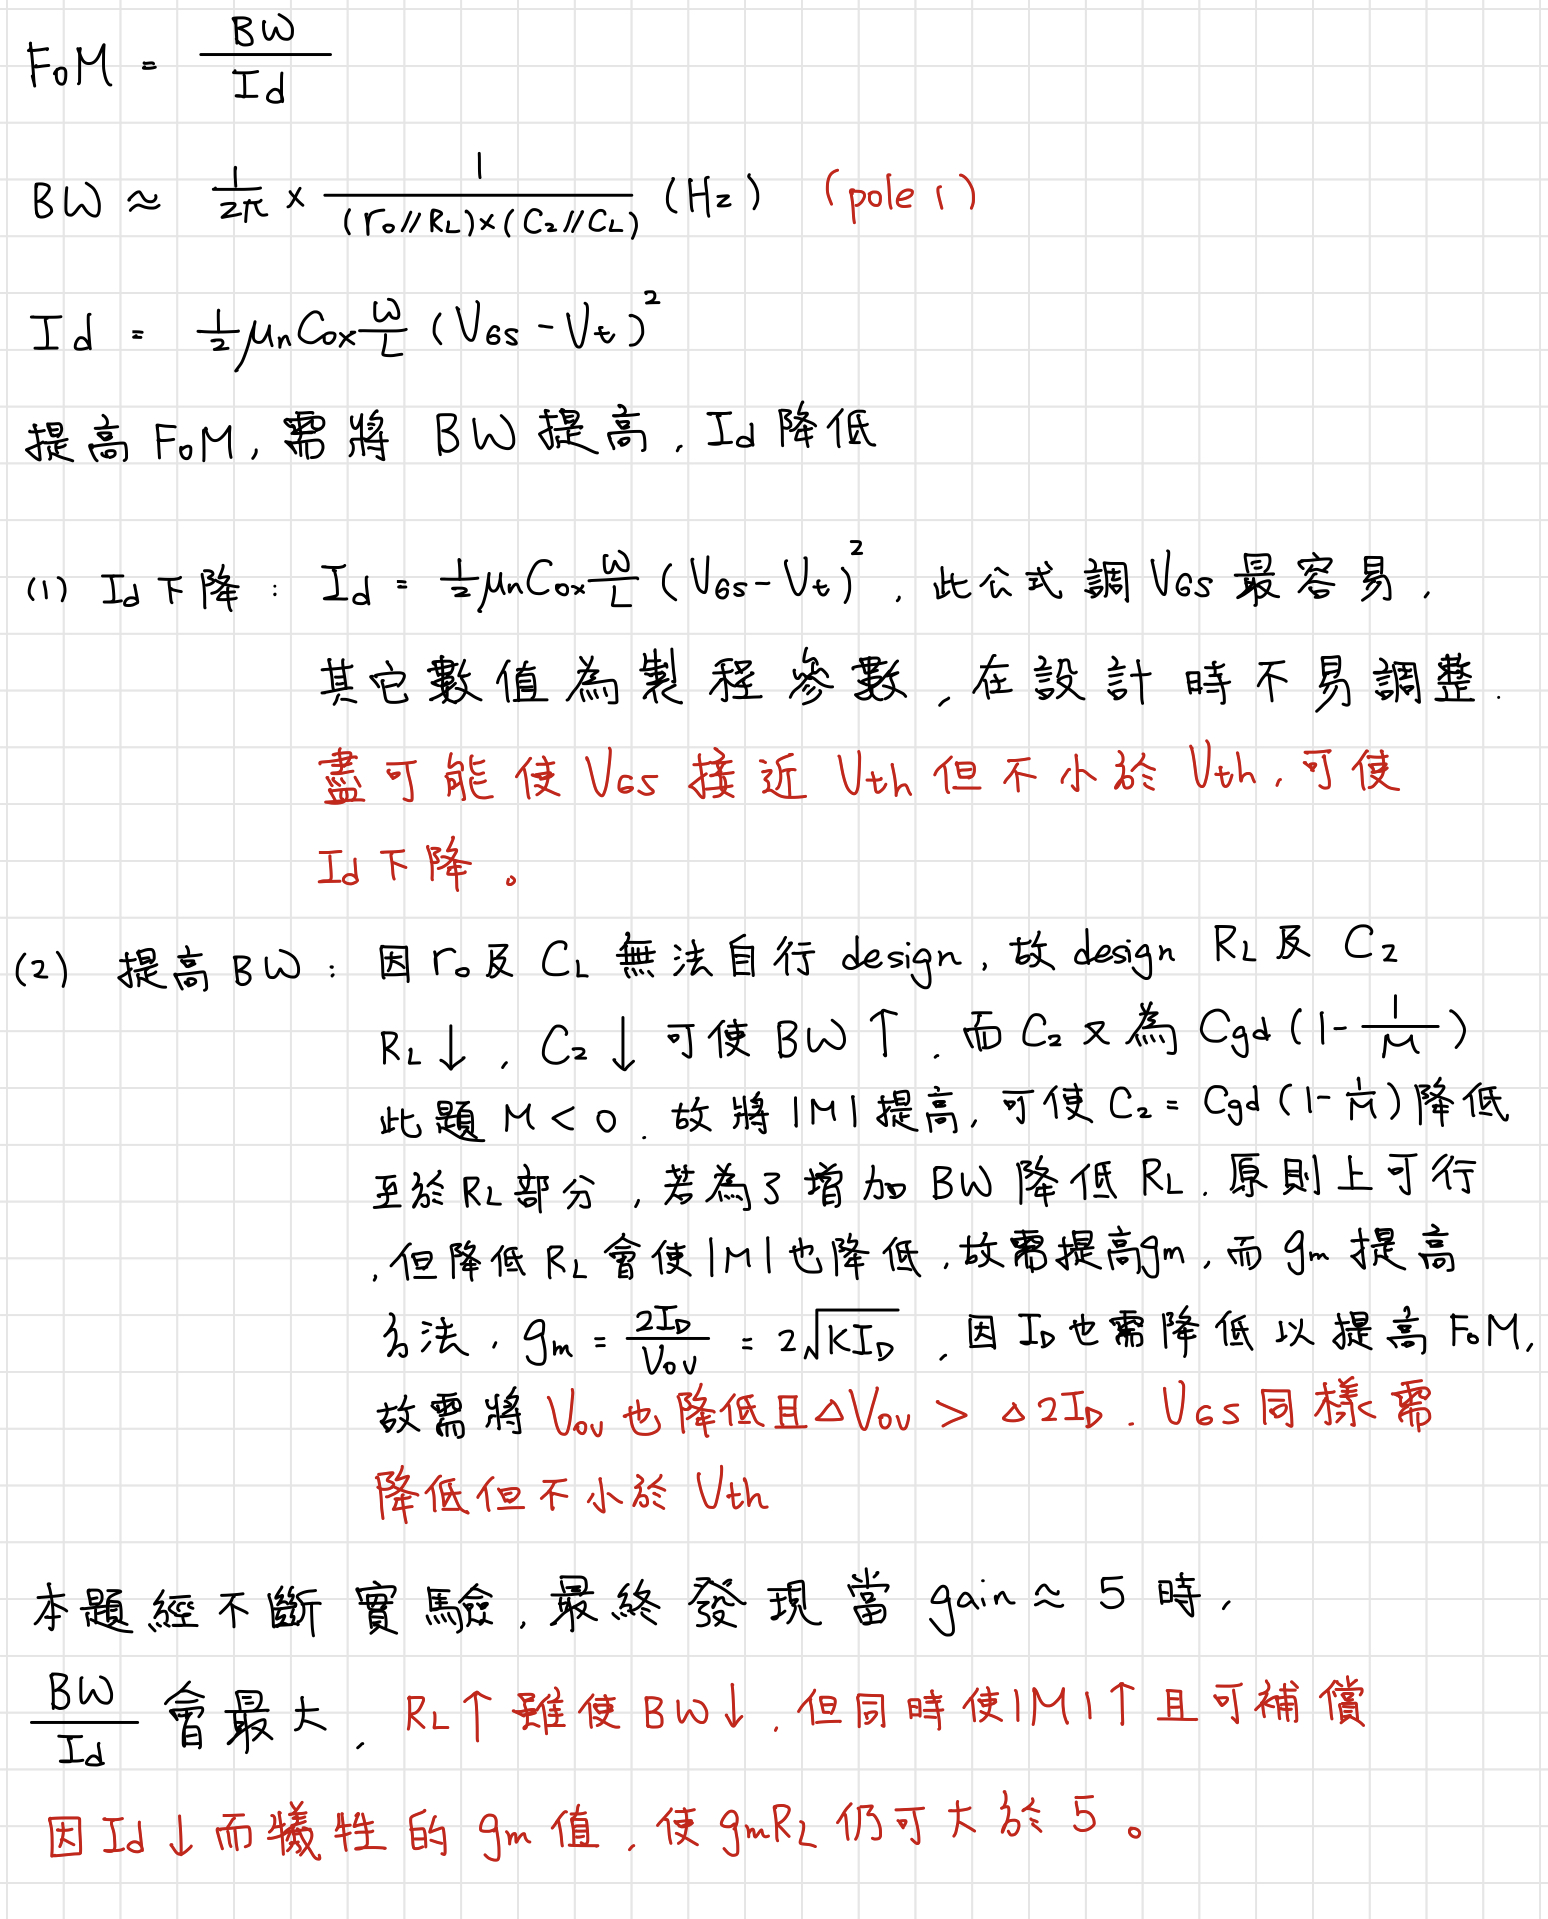 FoM = BW / Id
BW ≈ 1/2π × 1 / ((ro//RL)×(C2//CL)) (Hz) (pole 1)
Id = 1/2 μnCox W/L (VGS - Vt)²
提高 FoM, 需將 BW 提高, Id 降低
(1) Id 下降 : Id = 1/2 μnCox W/L (VGS - Vt)², 此公式調 VGS 最容易,
其它數值為製程參數, 在設計時不易調整.
盡可能使 VGS 接近 Vth 但不小於 Vth, 可使
Id 下降。
(2) 提高 BW : 因 ro 及 CL 無法自行 design, 故 design RL 及 C2
RL↓, C2↓ 可使 BW↑, 而 C2 又為 Cgd (1 - 1/M)
此題 M < 0. 故將 |M| 提高, 可使 C2 = Cgd (1 - 1/M) 降低
至於 RL 部分, 若為了增加 BW 降低 RL. 原則上可行
, 但降低 RL 會使 |M| 也降低, 故需提高gm, 而 gm 提高
方法, gm = 2ID / Vov = 2√KID, 因 ID 也需降低以提高 FoM,
故需將 Vov 也降低且 ΔVov > Δ2ID. VGS 同樣需
降低但不小於 Vth
本題經不斷實驗, 最終發現當 gain ≈ 5 時,
BW / Id 會最大, RL↑ 雖使 BW↓, 但同時使 |M|↑ 且可補償
因 Id↓ 而犧牲的 gm 值, 使 gmRL 仍可大於 5。